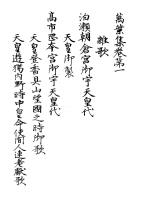 萬葉集巻第一
雜歌
泊瀬朝倉宮御宇天皇代
天皇御製
高市崗本宮御宇天皇代
天皇登香具山望國之時御歌
天皇遊獦内野時中皇命使間人連老獻歌